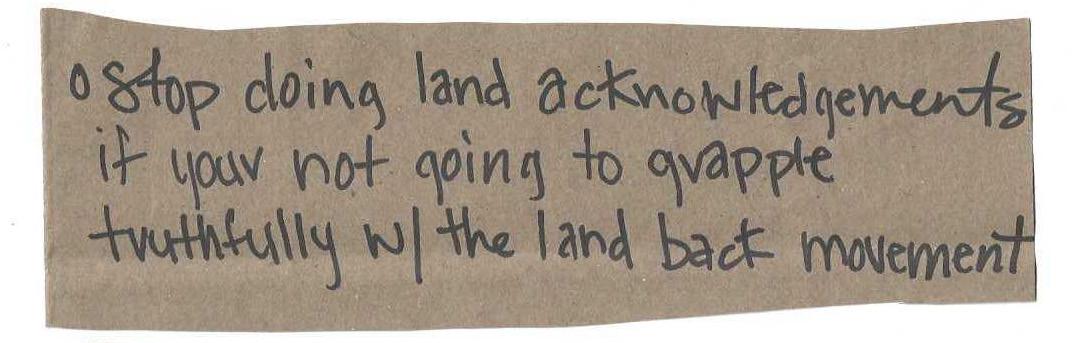 o stop doing land acknowledgements
if your not going to grapple
truthfully w/ the land back movement